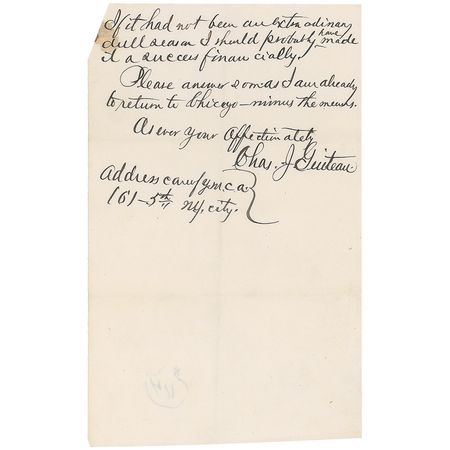 If it had not been an extra ordinary
dull season I should probably have made
it a success financially.
Please answer soon as I am already
to return to Chicago – minus the means.
As ever your affectionately
Chas. J Guiteau.
Address care of y.m.c.a.
161–5th ave
N.y. city.